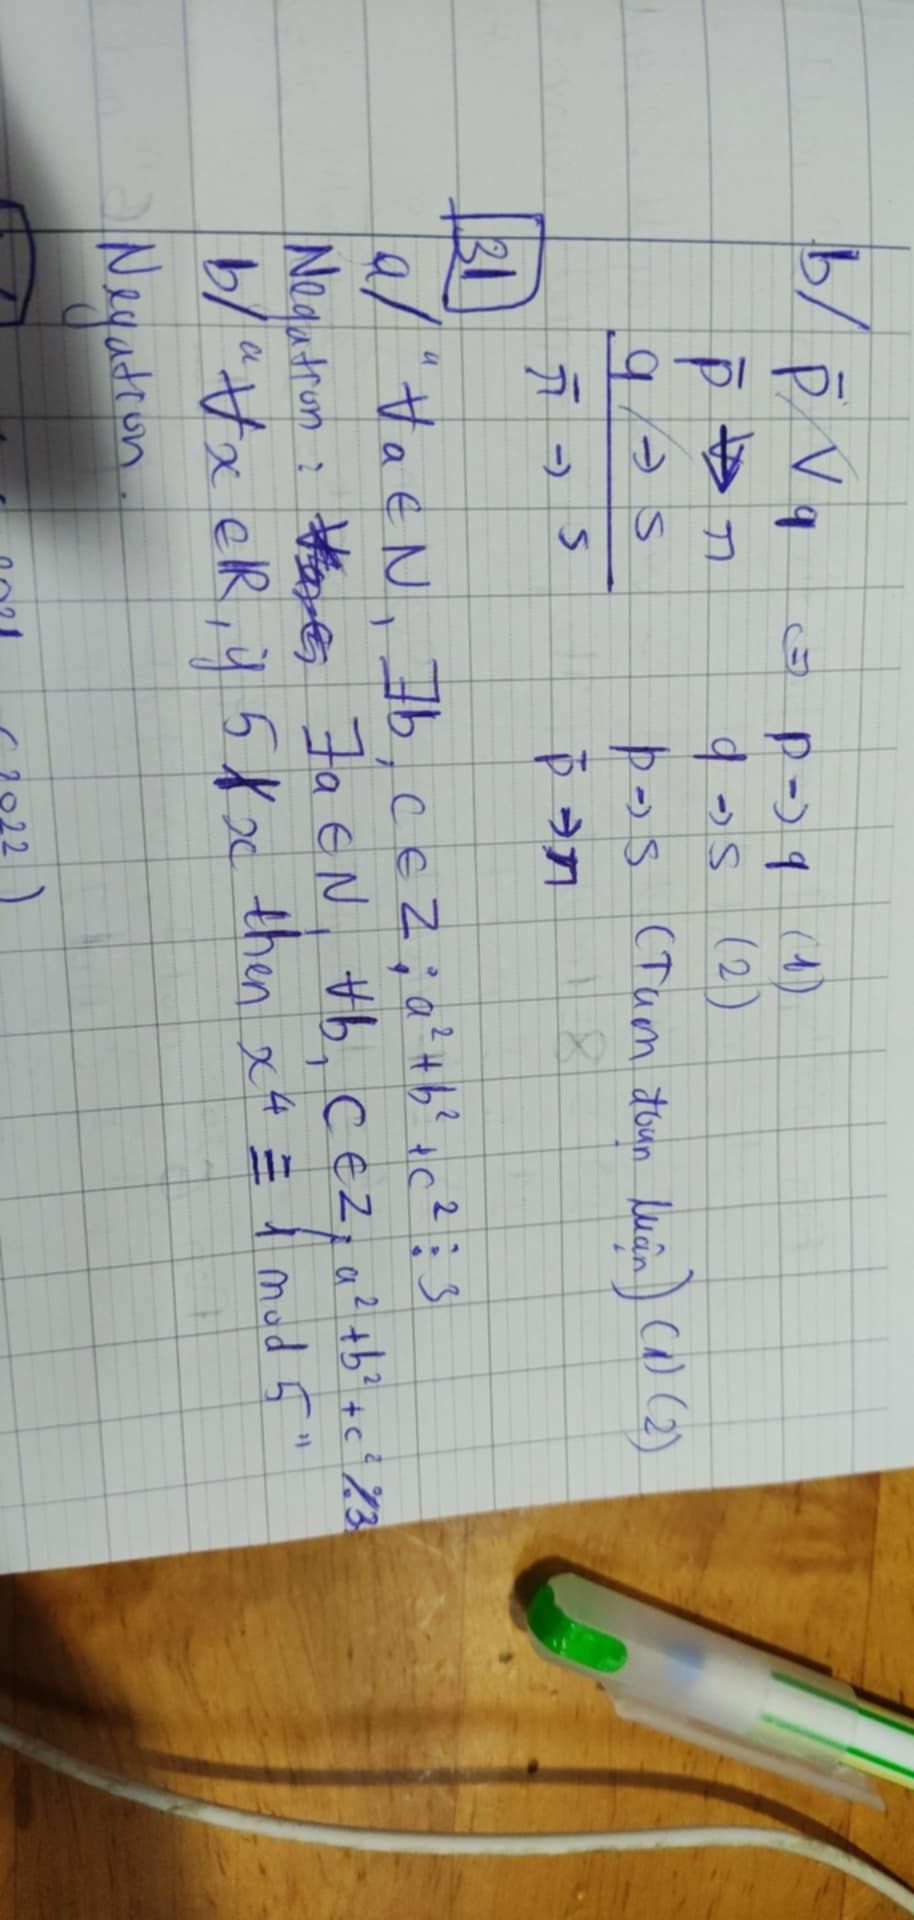 b/ p̄ ∨ q ⇔ p → q (1)
p̄ → r q → s (2)
q → s p → s (Tam đoạn luận) (1) (2)
r̄ → s p̄ → r
31
a/ "∀a ∈ N, ∃b, c ∈ Z; a² + b² + c² ⋮ 3
Negation: ∃a ∈ N, ∀b, c ∈ Z; a² + b² + c² ⋮̸ 3
b/ "∀x ∈ R, if 5 ∤ x then x⁴ ≡ 1 mod 5"
Negation.
2022)